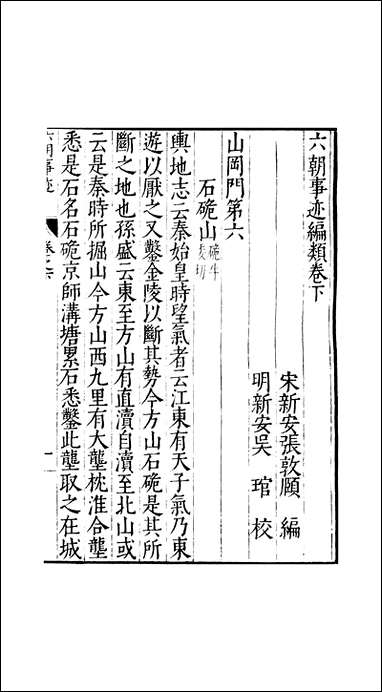 六朝事迹編類卷下
宋新安張敦頤 編
明新安吳 琯 校
山岡門第六
石硊山 硊牛
切
輿地志云秦始皇時望氣者云江東有天子氣乃東
遊以厭之又鑿金陵以斷其勢今方山石硊是其所
斷之地也孫盛云東至方山有直瀆自瀆至北山或
云是秦時所掘山今方山西九里有大壟枕淮合壟
悉是石名石硊京師溝塘累石悉鑿此壟取之在城
朝事迹 一